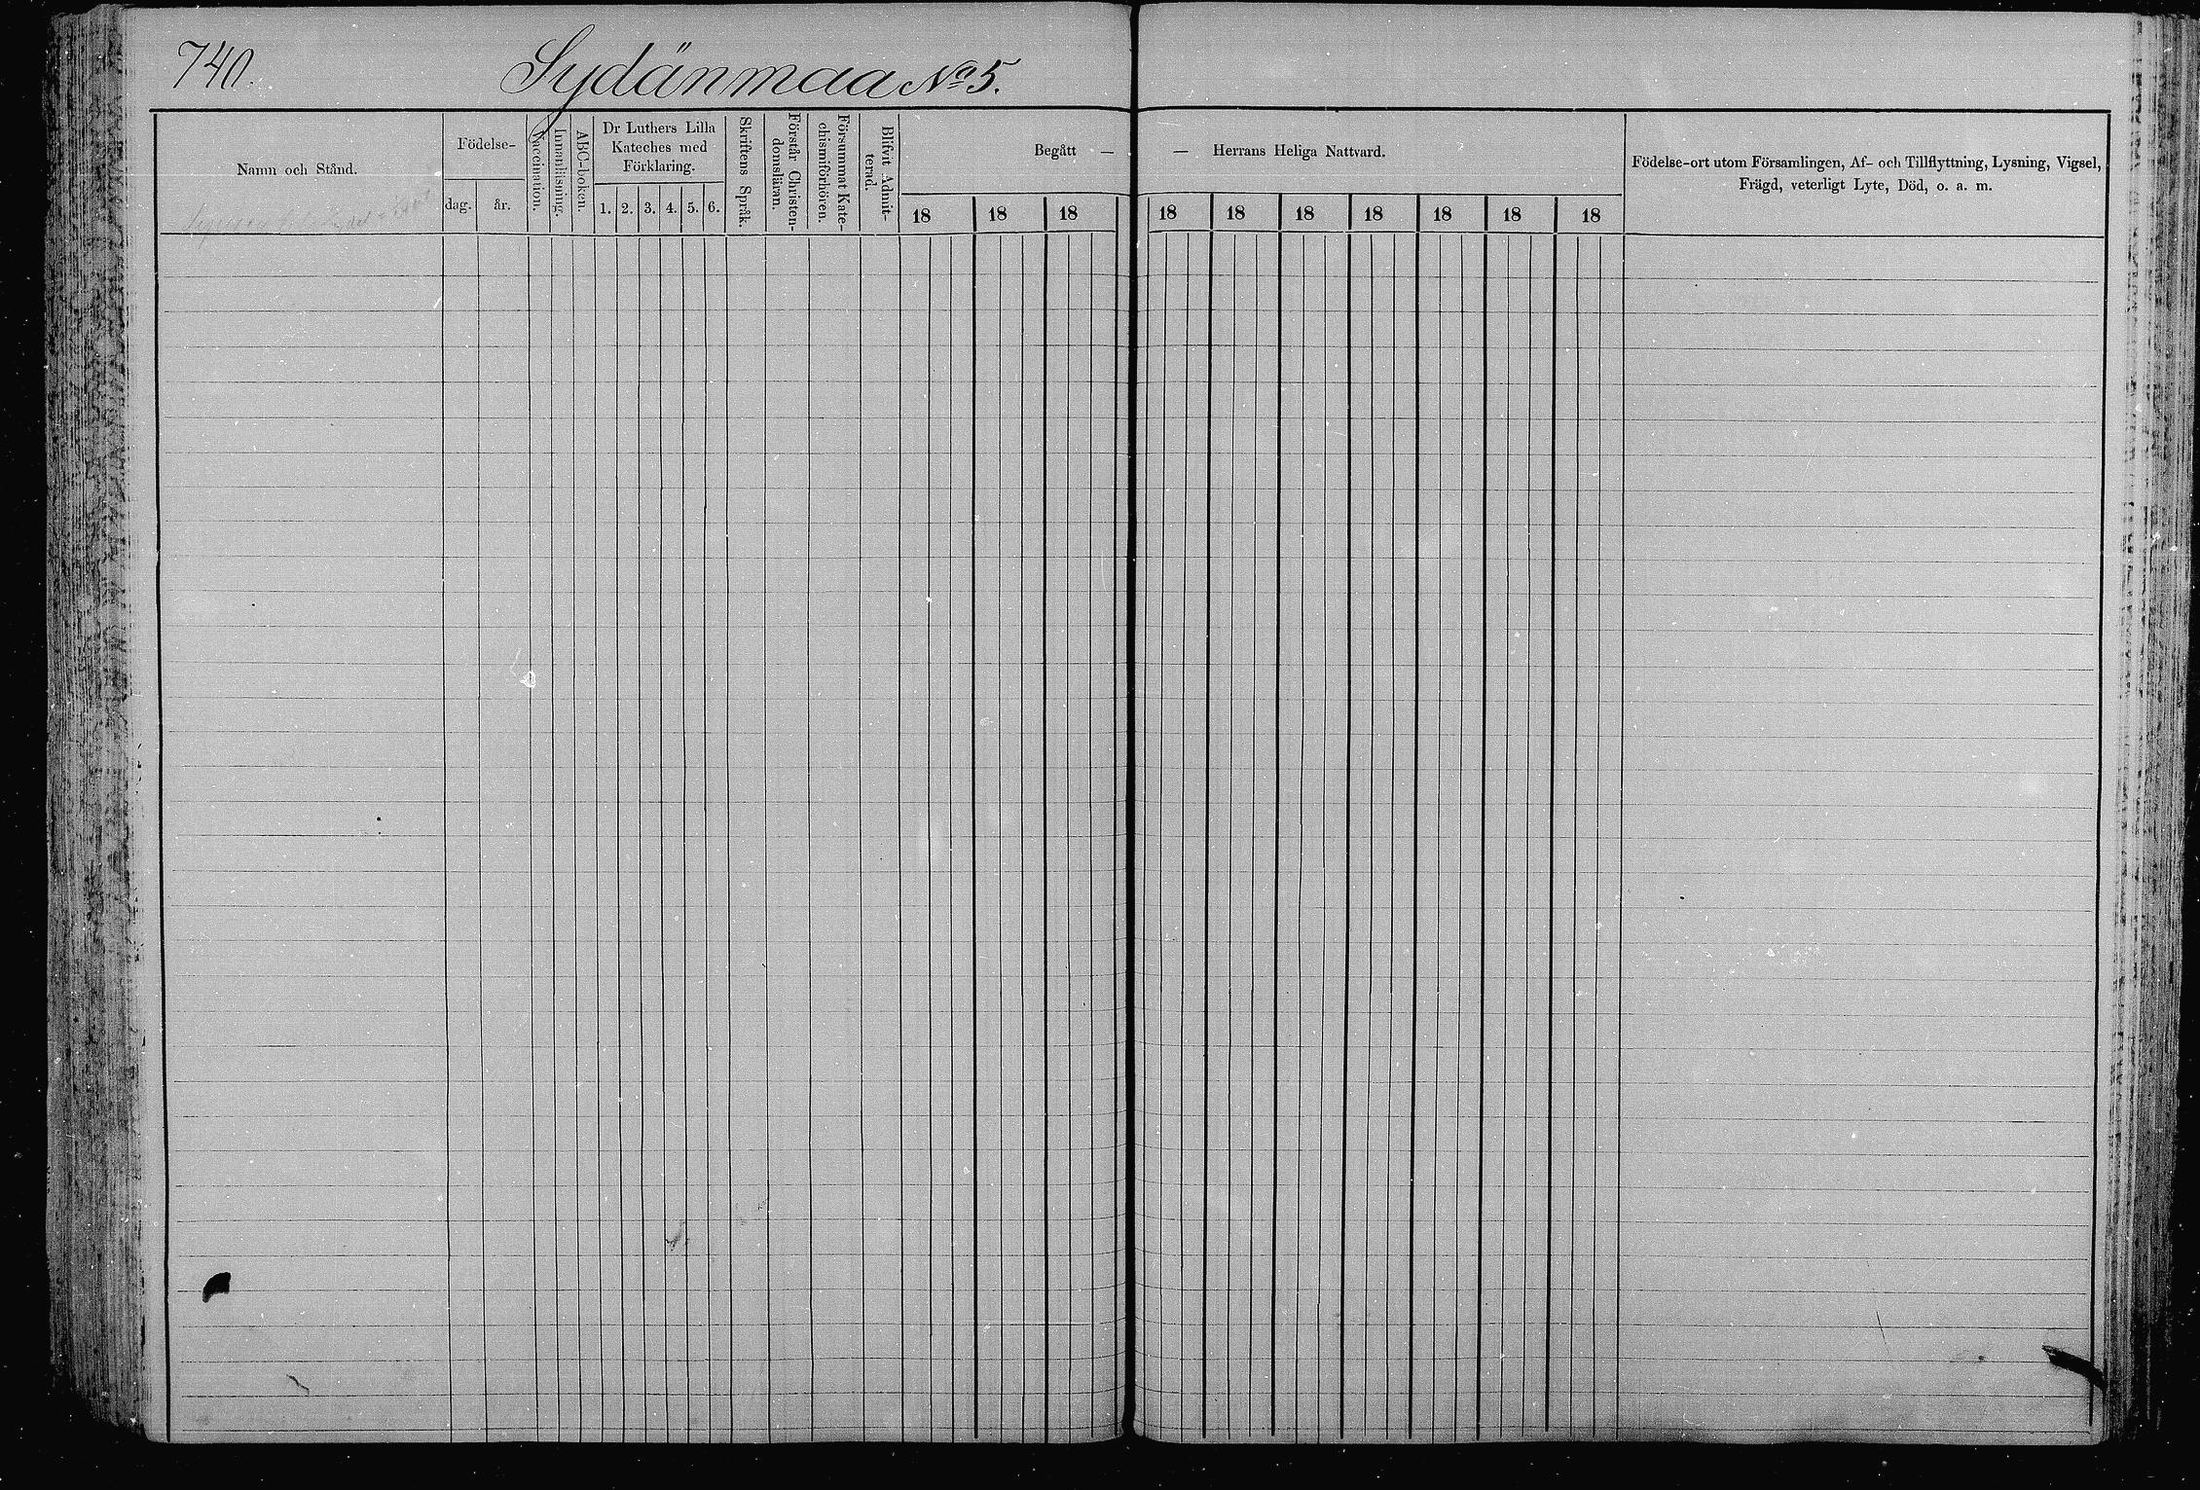 740.
Sydänmaa No 5.
Namn och Stånd.
Födelse-
dag.
år.
Vaccination.
Innanläsning.
ABC-boken.
Dr Luthers Lilla
Kateches med
Förklaring.
1. 2. 3. 4. 5. 6.
Skriftens Språk.
Förstår Christen-
domsläran.
Försummat Kate-
chismiförhören.
Blifvit Admit-
terad.
Begått —
— Herrans Heliga Nattvard.
18 18 18 18 18 18 18 18 18 18
Födelse-ort utom Församlingen, Af- och Tillflyttning, Lysning, Vigsel,
Frägd, veterligt Lyte, Död, o. a. m.